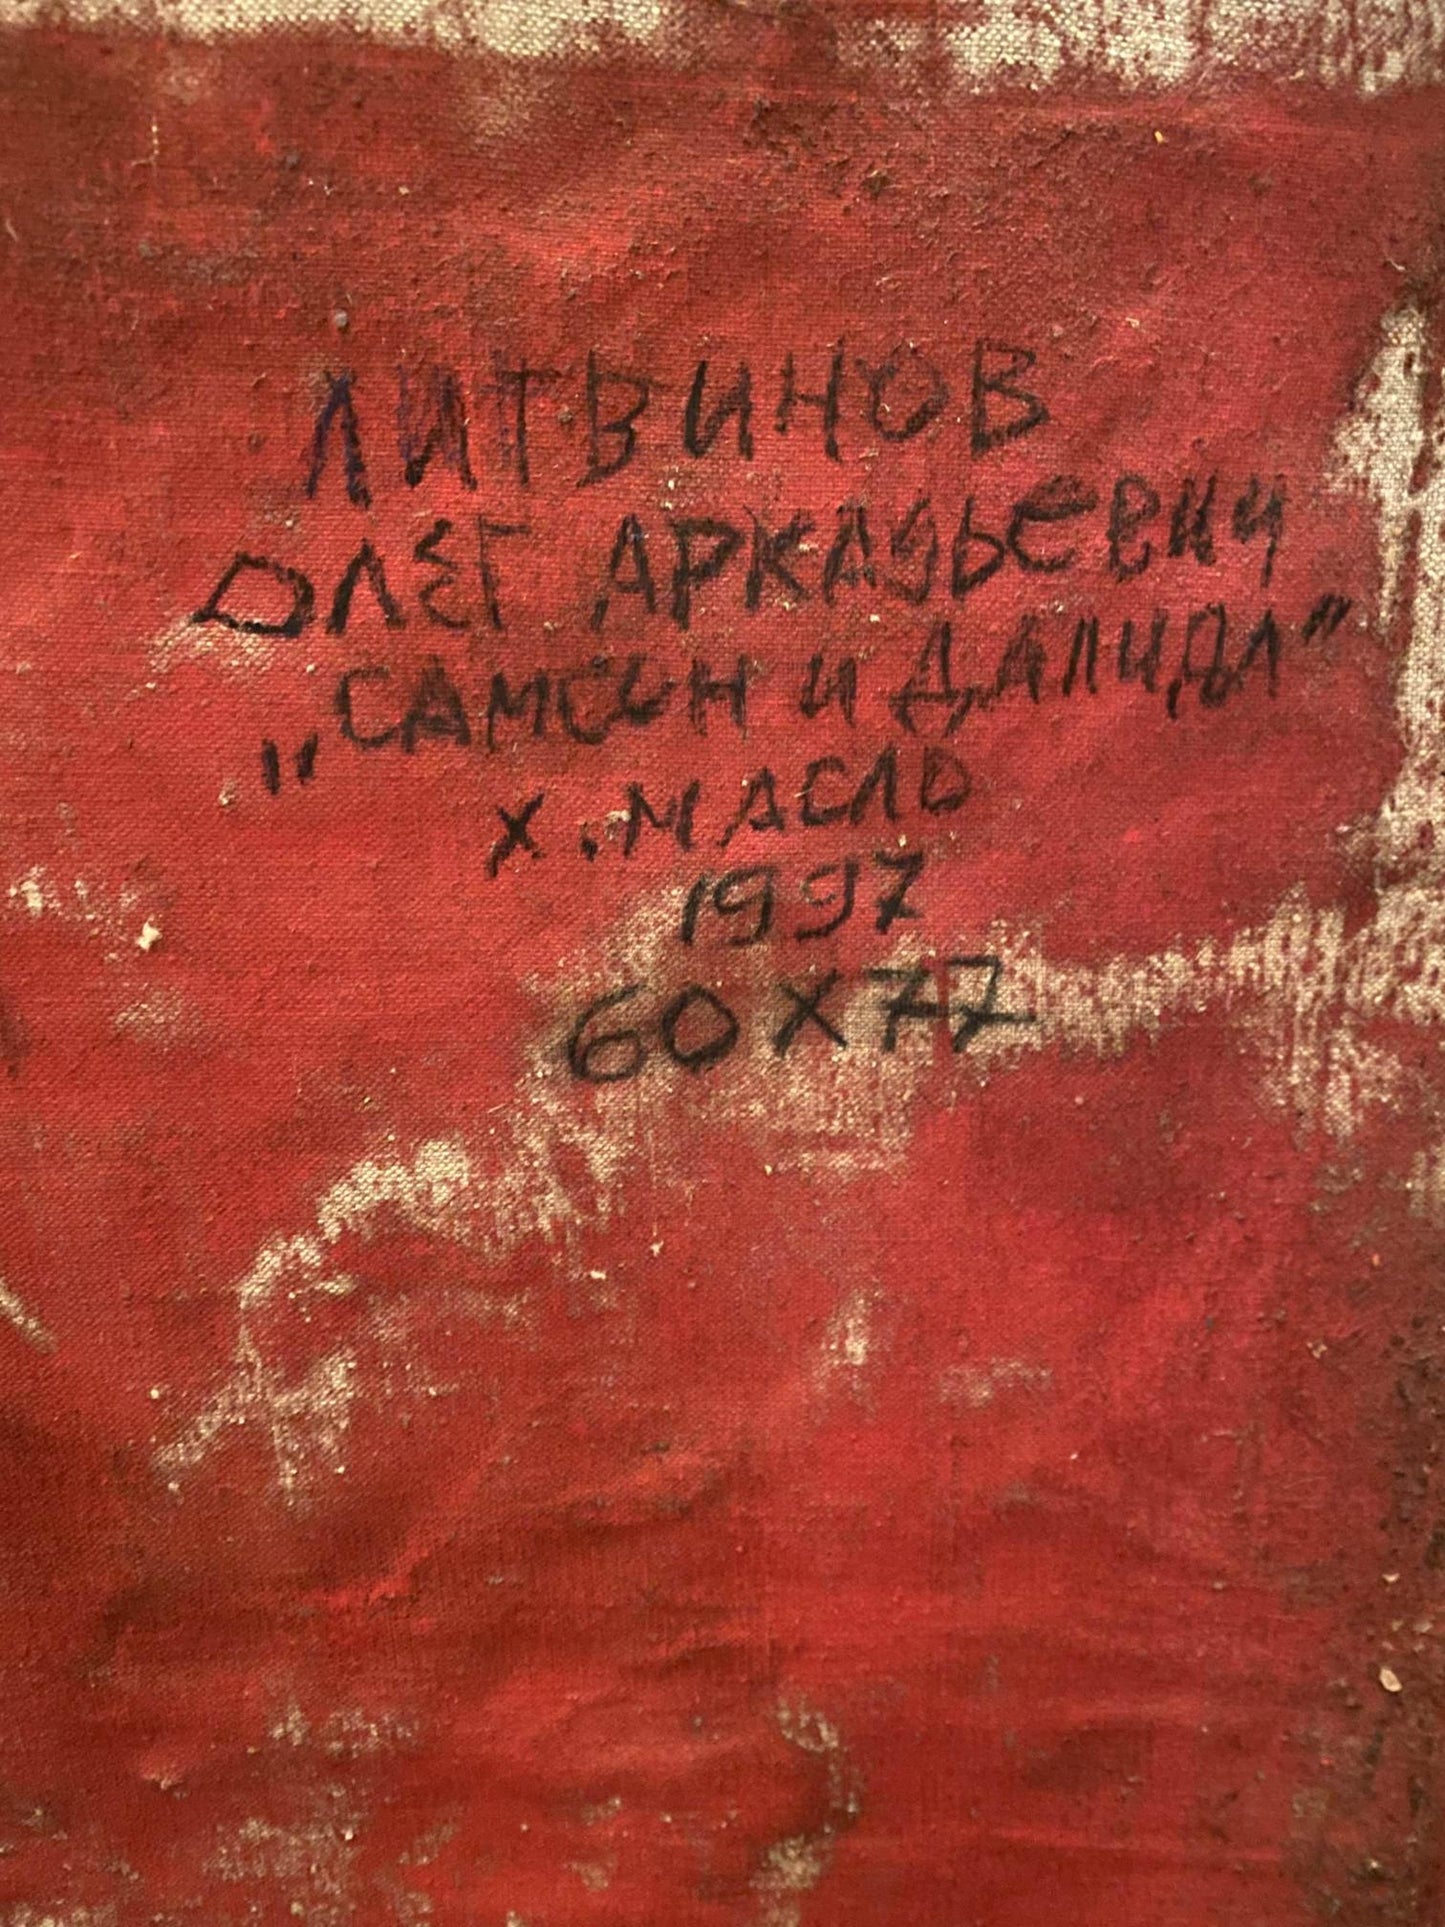 ЛИТВИНОВ
ОЛЕГ АРКАДЬЕВИЧ
„САМСОН И ДАЛИДА"
Х. МАСЛО
1997
60 Х 77